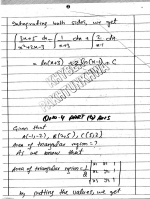 Integrating both sides, we get
∫ 3x+5 / x²+2x-3 dx = ∫ 1/x+3 dx + ∫ 2/x-1 dx
= ln(x+3) + 2 ln(x-1) + C
Q.no.4 PART (b) Ans
Given that
A(-1,-2), B(2,5), C(5,2)
Area of triangular region = ?
As we know that
Area of triangular region = 1/2
by putting the values, we get